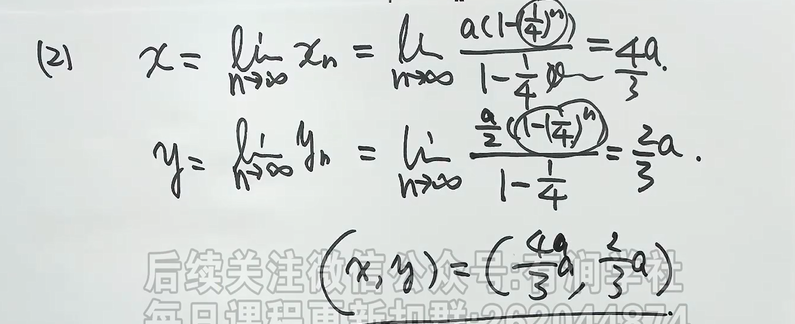 (2) x = lim n→∞ xn = lim n→∞ a(1-(1/4)^n) / 1-1/4 = 4/3 a.
y = lim n→∞ yn = lim n→∞ a/2 (1-(1/4)^n) / 1-1/4 = 2/3 a.
(x,y) = (4/3 a, 2/3 a).
后续关注微信公众号:有润学社
每日课程更新扣群:262044874